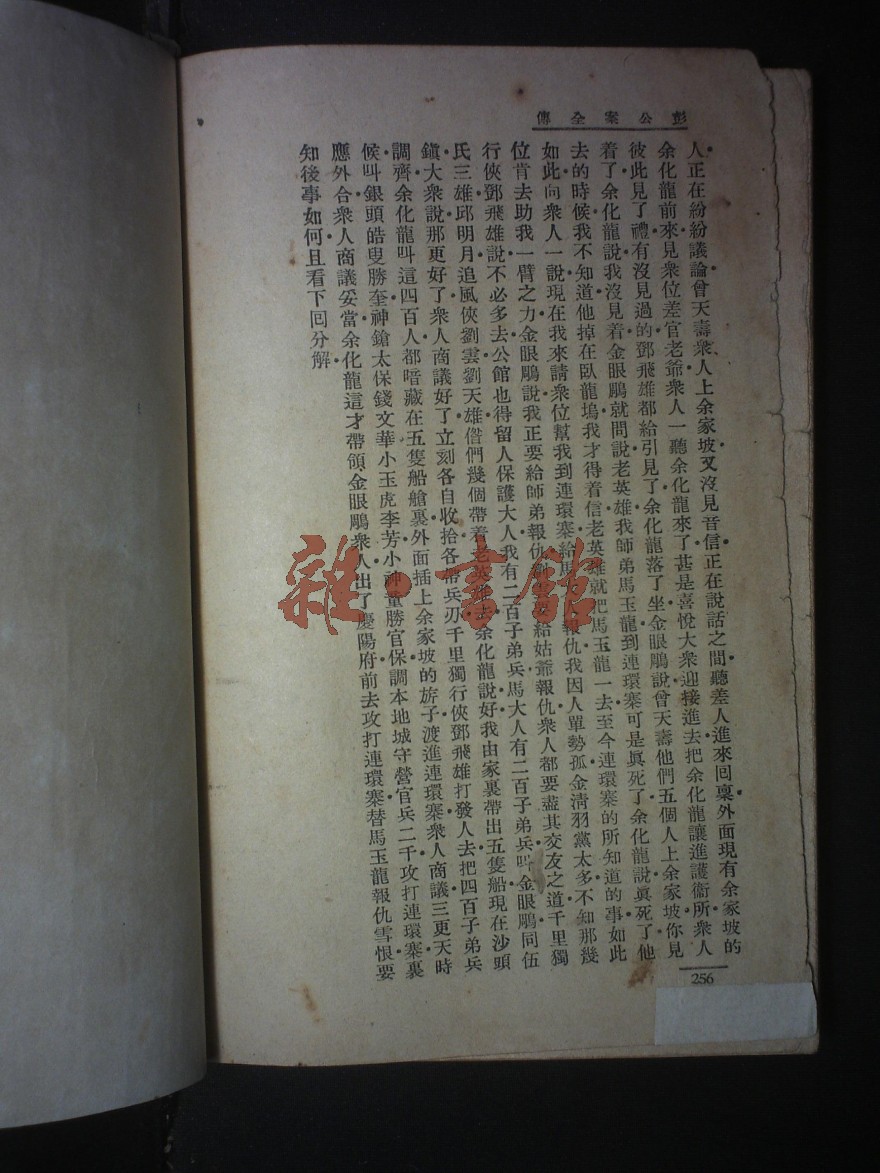 彭公案全傳
人正在紛紛議論曾天壽衆人上余家坡又沒見音信正在說話之間聽差人進來回稟外面現有余家坡的
余化龍前來見衆位差官老爺衆人一聽余化龍來了甚是喜悅大衆迎接進去把余化龍讓進護衛所衆人
彼此見了禮有沒見過的鄧飛雄都給引見了余化龍落了坐金眼鵰說曾天壽他們五個人上余家坡你見
着了余化龍說我沒見着金眼鵰就問說老英雄我師弟馬玉龍到連環寨可是眞死了余化龍說眞死了他
去的時候我不知道他掉在臥龍塢我才得着信老英雄就把馬玉龍一去至今連環寨的所知道的事如此
如此向衆人一說現在我來請衆位幫我到連環寨給馬報仇我因人單勢孤金淸羽黨太多不知那幾
位肯去助我一臂之力金眼鵰說我正要給師弟報仇給姑爺報仇衆人都要盡其交友之道千里獨
行俠鄧飛雄說不必多去公館也得留人保護大人我有二百子弟兵馬大人有二百子弟兵叫金眼鵰同伍
氏三雄邱明月追風俠劉雲劉天雄偺們幾個帶着老英雄去余化龍說好我由家裏帶出五隻船現在沙頭
鎭大衆說那更好了衆人商議好了立刻各自收拾各帶兵刃千里獨行俠鄧飛雄打發人去把四百子弟兵
調齊余化龍叫這四百人都暗藏在五隻船艙裏外面插上余家坡的旂子渡進連環寨衆人商議三更天時
候叫銀頭皓叟勝奎神鎗太保錢文華小玉虎李芳小神童勝官保調本地城守營官兵二千攻打連環寨裏
應外合衆人商議妥當余化龍這才帶領金眼鵰衆人出了慶陽府前去攻打連環寨替馬玉龍報仇雪恨要
知後事如何且看下回分解
256
雜書館